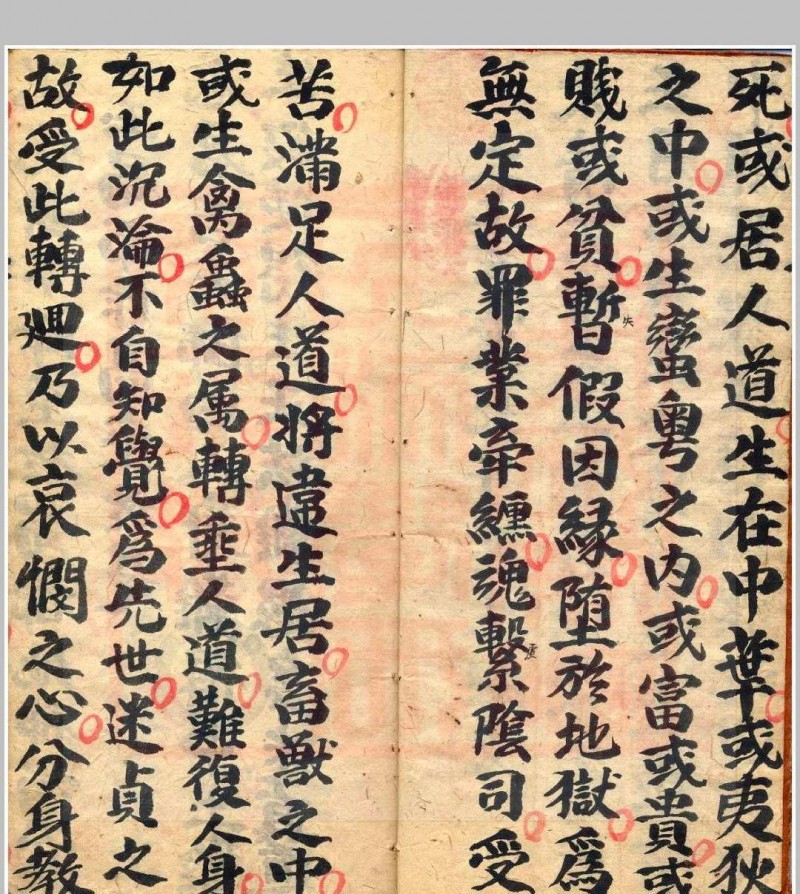 死或居人道生在中華或夷狄
之中或生蠻粵之内或富或貴或
賎或貧暫假因縁堕於地獄爲
無定故罪業牽纏魂繫陰司受
苦滿足人道將違生居畜獸之中
或生禽蟲之属轉乖人道難復人身
如此沉淪不自知覺爲先世迷貞之
故受此轉廻乃以哀憫之心分身教